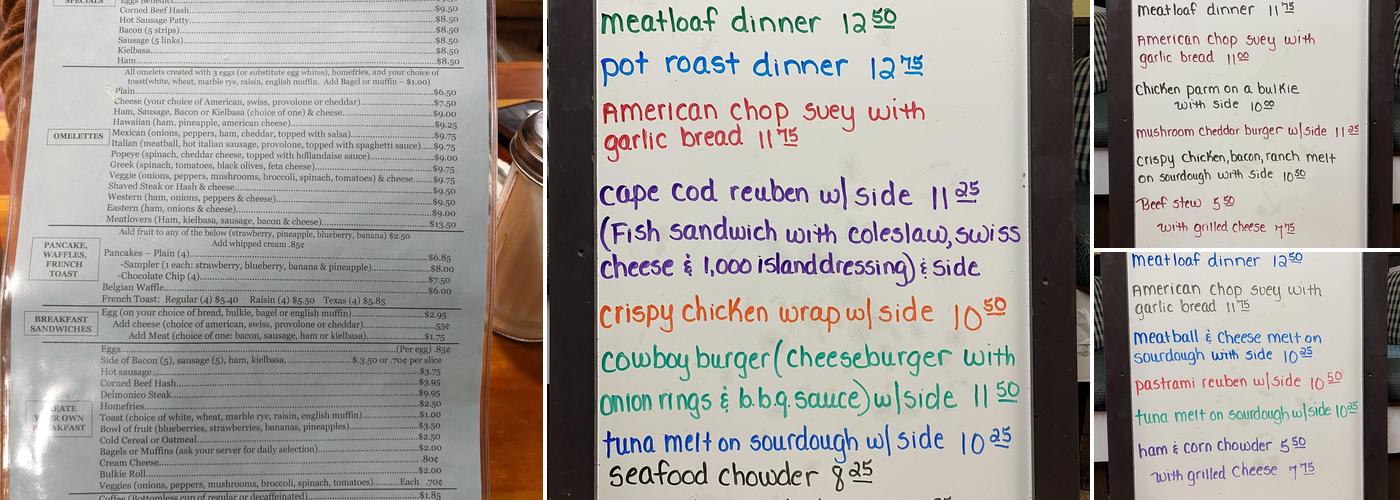 SPECIALS
Eggs Benedict
Corned Beef Hash $9.50
Hot Sausage Patty $8.50
Bacon (5 strips) $8.50
Sausage (5 links) $8.50
Kielbasa $8.50
Ham $8.50
All omelets created with 3 eggs (or substitute egg whites), homefries, and your choice of
toast(white, wheat, marble rye, raisin, english muffin. Add Bagel or muffin – $1.00)
OMELETTES
Plain $6.50
Cheese (your choice of American, swiss, provolone or cheddar) $7.50
Ham, Sausage, Bacon or Kielbasa (choice of one) & cheese $9.00
Hawaiian (ham, pineapple, american cheese) $9.25
Mexican (onions, peppers, ham, cheddar, topped with salsa) $9.75
Italian (meatball, hot italian sausage, provolone, topped with spaghetti sauce) $9.75
Popeye (spinach, cheddar cheese, topped with hollandaise sauce) $9.00
Greek (spinach, tomatoes, black olives, feta cheese) $9.75
Veggie (onions, peppers, mushrooms, broccoli, spinach, tomatoes) & cheese $9.75
Shaved Steak or Hash & cheese $9.50
Western (ham, onions, peppers & cheese) $9.50
Eastern (ham, onions & cheese) $9.00
Meatlovers (Ham, kielbasa, sausage, bacon & cheese) $13.50
PANCAKE,
WAFFLES,
FRENCH
TOAST
Add fruit to any of the below (strawberry, pineapple, blueberry, banana) $2.50
Add whipped cream .85¢
Pancakes – Plain (4) $6.85
-Sampler (1 each: strawberry, blueberry, banana & pineapple) $8.00
-Chocolate Chip (4) $7.50
Belgian Waffle $6.00
French Toast: Regular (4) $5.40 Raisin (4) $5.50 Texas (4) $5.85
BREAKFAST
SANDWICHES
Egg (on your choice of bread, bulkie, bagel or english muffin) $2.95
Add cheese (choice of american, swiss, provolone or cheddar) .55¢
Add Meat (choice of one: bacon, sausage, ham or kielbasa) $1.75
Eggs (Per egg) .85¢
Side of Bacon (5), sausage (5), ham, kielbasa, $3.50 or .70¢ per slice
Hot sausage $3.75
Corned Beef Hash $3.95
Delmonico Steak $9.95
Homefries $2.50
Toast (choice of white, wheat, marble rye, raisin, english muffin) $1.00
Bowl of fruit (blueberries, strawberries, bananas, pineapples) $3.50
Cold Cereal or Oatmeal $2.50
Bagels or Muffins (ask your server for daily selection) $2.00
Cream Cheese .80¢
Bulkie Roll $2.00
Veggies (onions, peppers, mushrooms, broccoli, spinach, tomatoes) Each .70¢
Coffee (Bottomless cup of regular or decaffeinated) $1.85
meatloaf dinner 12 50
pot roast dinner 12 75
American chop suey with
garlic bread 11 75
cape cod reuben w/ side 11 25
(Fish sandwich with coleslaw, swiss
cheese & 1,000 island dressing) & side
crispy chicken wrap w/ side 10 50
cowboy burger (cheeseburger with
onion rings & b.b.q. sauce) w/ side 11 50
tuna melt on sourdough w/ side 10 25
seafood chowder 8 25
meatloaf dinner 11 75
American chop suey with
garlic bread 11 00
chicken parm on a bulkie
with side 10 00
mushroom cheddar burger w/side 11 25
crispy chicken, bacon, ranch melt
on sourdough with side 10 50
Beef stew 5 50
with grilled cheese 7 75
meatloaf dinner 12 50
American chop suey with
garlic bread 11 75
meatball & cheese melt on
sourdough with side 10 25
pastrami reuben w/side 10 50
tuna melt on sourdough w/side 10 25
ham & corn chowder 5 50
with grilled cheese 7 75